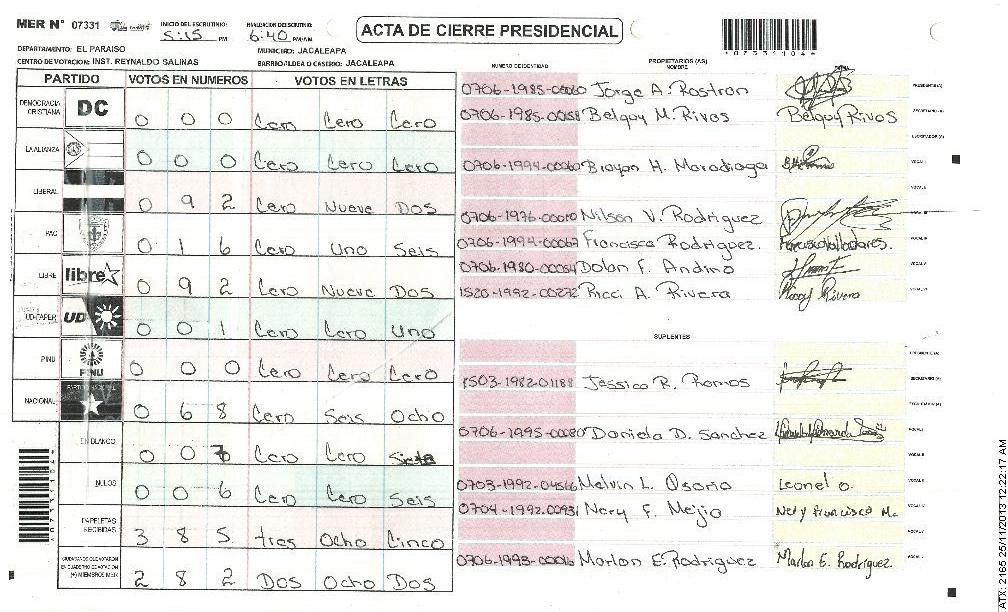 MER N° 07331 INICIO DEL ESCRUTINIO: 5:15 PM FINALIZACION DEL ESCRUTINIO: 6:40 PM/AM ACTA DE CIERRE PRESIDENCIAL
DEPARTAMENTO: EL PARAISO MUNICIPIO: JACALEAPA
CENTRO DE VOTACION: INST. REYNALDO SALINAS BARRIO/ALDEA O CASERIO: JACALEAPA
NUMERO DE IDENTIDAD PROPIETARIOS (AS) NOMBRE FIRMA
PARTIDO VOTOS EN NUMEROS VOTOS EN LETRAS
DEMOCRACIA CRISTIANA DC 0 0 0 Cero Cero Cero
LA ALIANZA 0 0 0 Cero Cero Cero
LIBERAL 0 9 2 Cero Nueve Dos
PAC 0 1 6 Cero Uno Seis
LIBRE libre 0 9 2 Cero Nueve Dos
UD-FAPER UD 0 0 1 Cero Cero Uno
PINU PINU 0 0 0 Cero Cero Cero
NACIONAL PARTIDO NACIONAL 0 6 8 Cero Seis Ocho
EN BLANCO 0 0 7 Cero Cero Siete
NULOS 0 0 6 Cero Cero Seis
PAPELETAS RECIBIDAS 3 8 5 tres Ocho Cinco
CIUDADANOS QUE VOTARON EN CUADERNO DE VOTACION (+) MIEMBROS MER 2 8 2 Dos Ocho Dos
0706-1985-00060 Jorge A. Rostran PRESIDENTE (A)
0706-1985-00158 Belquy M. Rivas Belquy Rivas SECRETARIO (A)
ESCRUTADOR (A)
0706-1994-00060 Brayan H. Maradiaga VOCAL I
VOCAL II
0706-1976-00010 Nilson V. Rodriguez VOCAL III
0706-1994-00067 Francisca Rodriguez. VOCAL IV
0706-1980-00054 Dolan F. Andino VOCAL V
1520-1992-00272 Ricci A. Rivera Riccy Rivera VOCAL VI
SUPLENTES
PRESIDENTE (A)
1503-1982-01188 Jessica R. Ramos SECRETARIO (A)
ESCRUTADOR (A)
0706-1995-00080 Daniela D. Sanchez VOCAL I
VOCAL II
0703-1992-04516 Melvin L. Osorio Leonel O. VOCAL III
0704-1992-00931 Nery F. Mejia Nery Francisco M. VOCAL IV
VOCAL V
0706-1993-00016 Marlon E. Rodriguez Marlon E. Rodriguez.
ATX: 2165 25/11/2013 12:22:17 AM